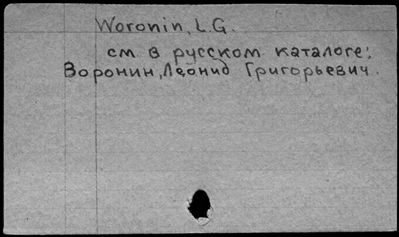 Woronin, L.G.
см в русском каталоге:
Воронин, Леонид Григорьевич.